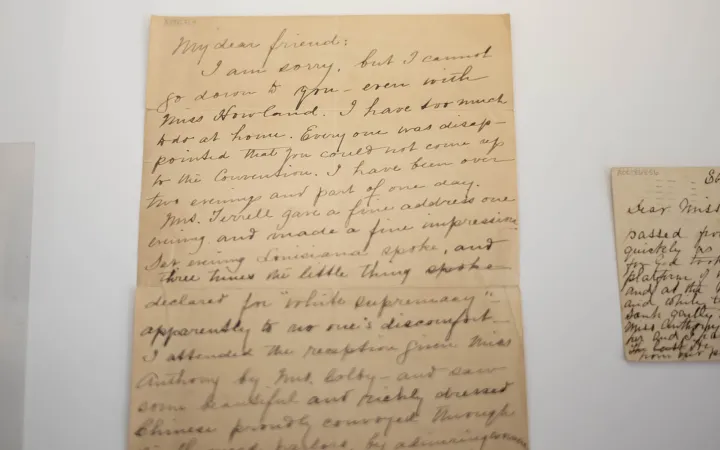 My dear friend:
I am sorry, but I cannot
go down to you - even with
Miss Howland. I have too much
to do at home. Every one was disap-
pointed that you could not come up
to the Convention. I have been over
two evenings and part of one day.
Mrs. Terrell gave a fine address one
evening and made a fine impression.
evening Louisiana spoke, and
three times the little thing spoke
declared for "white supremacy" -
apparently to no one's discomfort.
I attended the reception given Miss
Anthony by Mrs. Colby - and saw
some beautiful and richly dressed
Chinese proudly convoyed through
parlors, by admiring women
Dear Miss
passed
quickly as
for God took
platform
and at the
and while
sank gently
Miss Anthony
her and